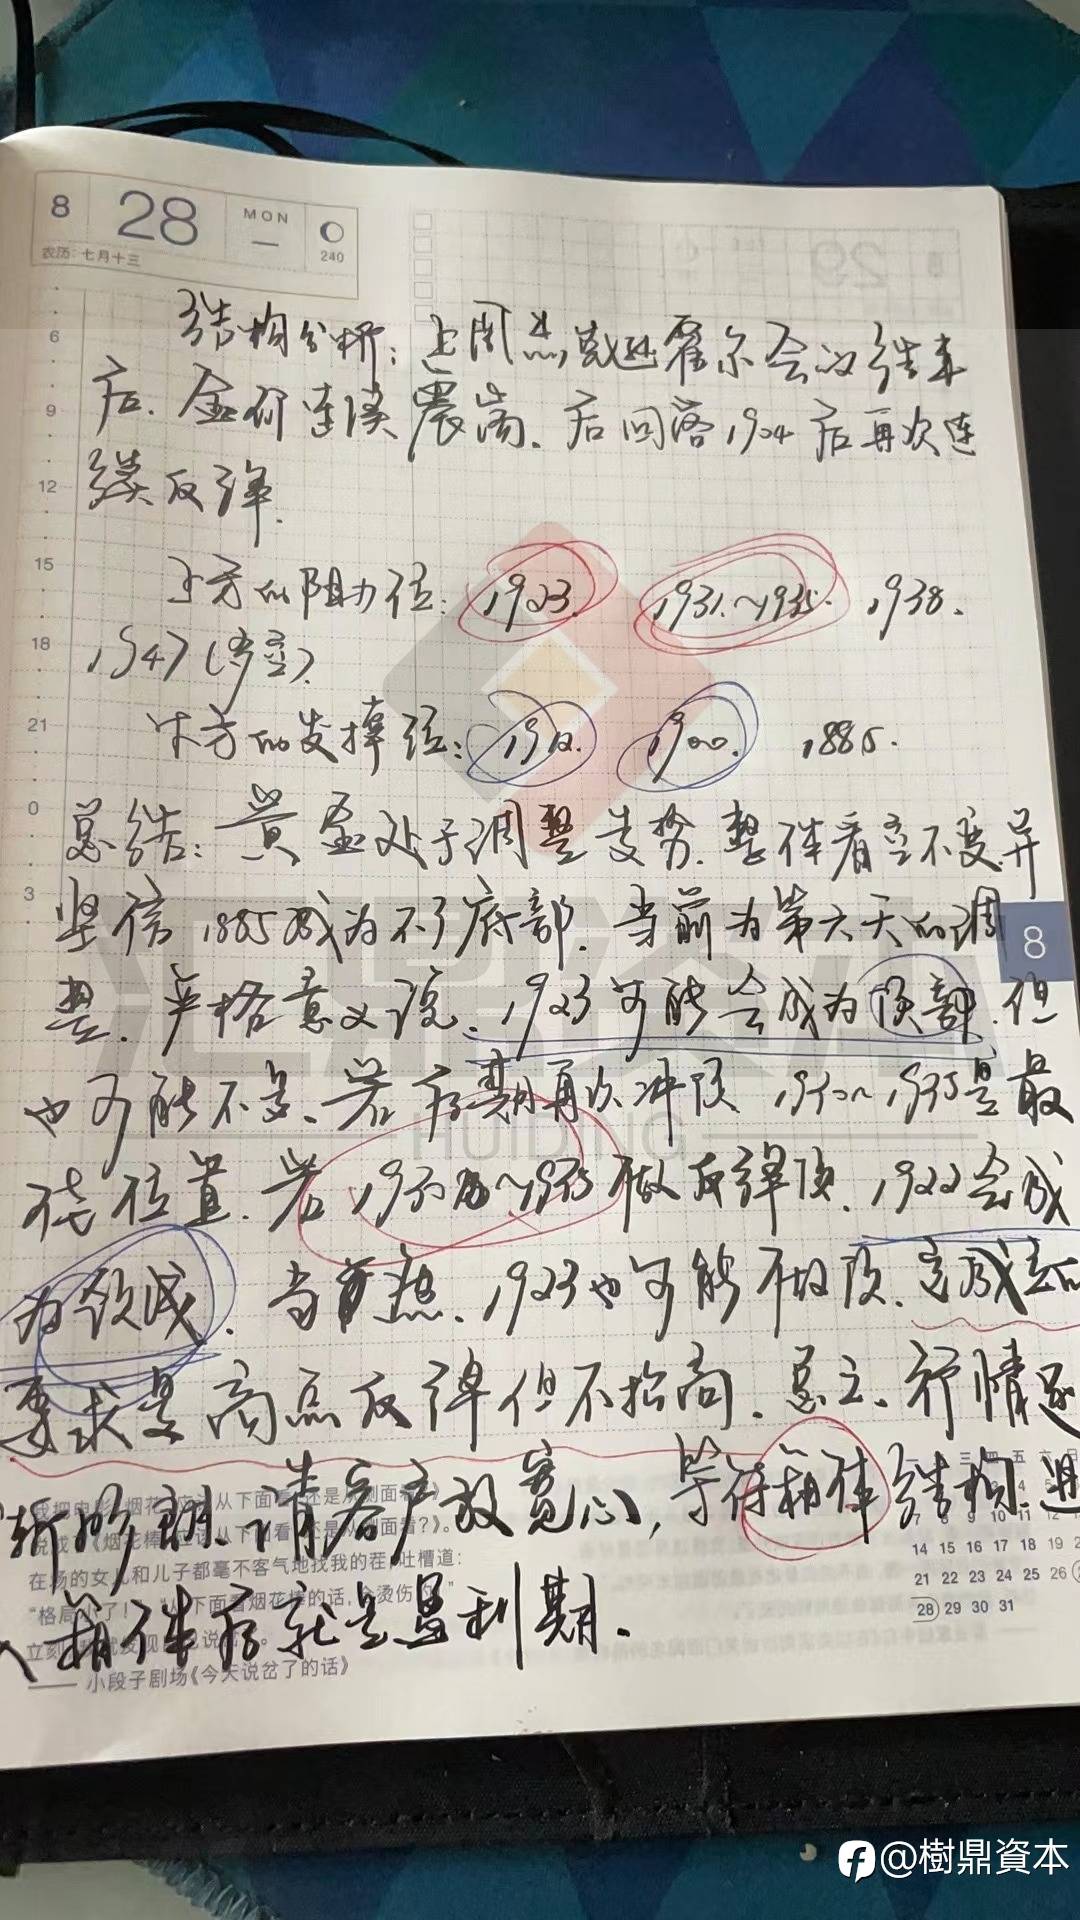 8 28 MON 一 240
农历:七月十三
结构分析:上周杰克逊霍尔会议结束
后.金价连续震荡.后回落1904后再次连
续反弹.
上方的阻力位:1923. 1931.~1935. 1938.
1947(多空).
下方的支撑位:1912. 1900. 1885.
总结:黄金处于调整走势.整体看空不变.并
坚信1885成为不了底部.当前为第六天的调
整.严格意义说.1923可能会成为顶部.但
也可能不是.若后期再次冲顶.1930~1935是最
佳位置.若1930~1935做反弹顶.1922会成
为.当前.1923也可能不做顶.
要求是高点反弹但不抬高.总之.行情逐
渐明朗.请客户放宽心,等待箱体结构.进
入箱体后就是盈利期.
6
9
12
15
18
21
0
3
8
HUIDING
在场的女儿和儿子都毫不客气地找我的茬,吐槽道:
小段子剧场《今天说岔了的话》
14 15 16 17 18 19
21 22 23 24 25 26
28 29 30 31
@樹鼎資本